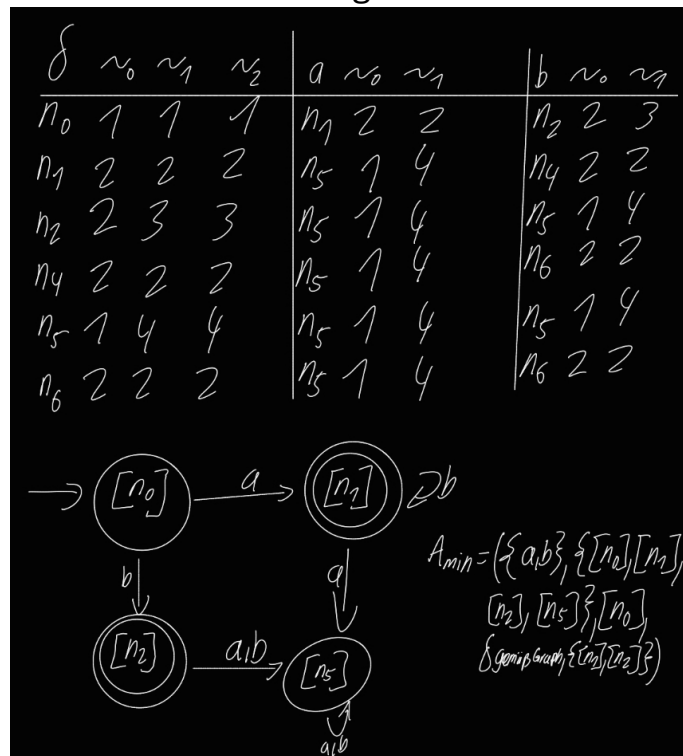 δ ~₀ ~₁ ~₂ a ~₀ ~₁ b ~₀ ~₁
n₀ 1 1 1 n₁ 2 2 n₂ 2 3
n₁ 2 2 2 n₅ 1 4 n₄ 2 2
n₂ 2 3 3 n₅ 1 4 n₅ 1 4
n₄ 2 2 2 n₅ 1 4 n₆ 2 2
n₅ 1 4 4 n₅ 1 4 n₅ 1 4
n₆ 2 2 2 n₅ 1 4 n₆ 2 2
[n₀] a [n₁] b
b a
[n₂] a,b [n₅]
a,b
A_min = ({a,b}, {[n₀],[n₁],
[n₂],[n₅]},[n₀],
δ gemäß Graph, {[n₁],[n₂]})